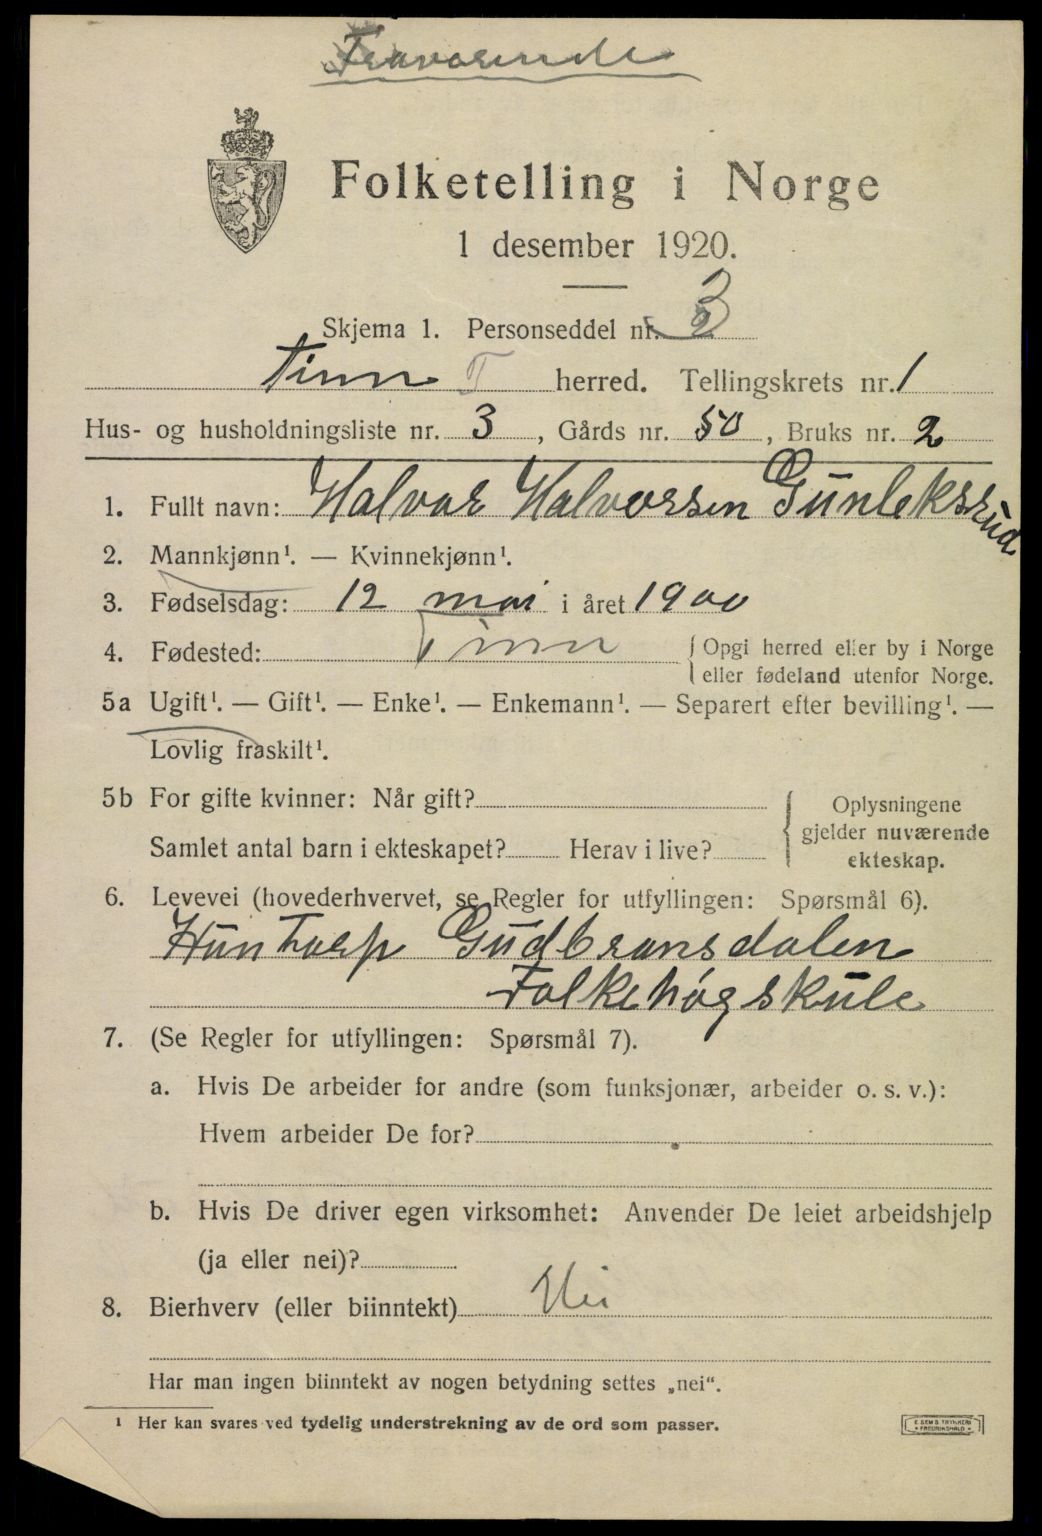 Fraværende
Folketelling i Norge
1 desember 1920.
Skjema 1. Personseddel nr. 3
Tinn T herred. Tellingskrets nr. 1
Hus- og husholdningsliste nr. 3, Gårds nr. 50, Bruks nr. 2
1. Fullt navn: Halvor Halvorsen Gunleksrud
2. Mannkjønn¹. — Kvinnekjønn¹.
3. Fødselsdag: 12 mai i året 1900
4. Fødested: Tinn {Opgi herred eller by i Norge
eller fødeland utenfor Norge.
5a Ugift¹. — Gift¹. — Enke¹. — Enkemann¹. — Separert efter bevilling¹. —
Lovlig fraskilt¹.
5b For gifte kvinner: Når gift?
Samlet antal barn i ekteskapet? Herav i live?
{Oplysningene
gjelder nuværende
ekteskap.
6. Levevei (hovederhvervet, se Regler for utfyllingen: Spørsmål 6).
Huntorp Gudbransdalen
Folkehøgskule
7. (Se Regler for utfyllingen: Spørsmål 7).
a. Hvis De arbeider for andre (som funksjonær, arbeider o. s. v.):
Hvem arbeider De for?
b. Hvis De driver egen virksomhet: Anvender De leiet arbeidshjelp
(ja eller nei)?
8. Bierhverv (eller biinntekt) Nei
Har man ingen biinntekt av nogen betydning settes „nei".
¹ Her kan svares ved tydelig understrekning av de ord som passer.
E. SEM'S TRYKKERI
• FREDRIKSHALD •